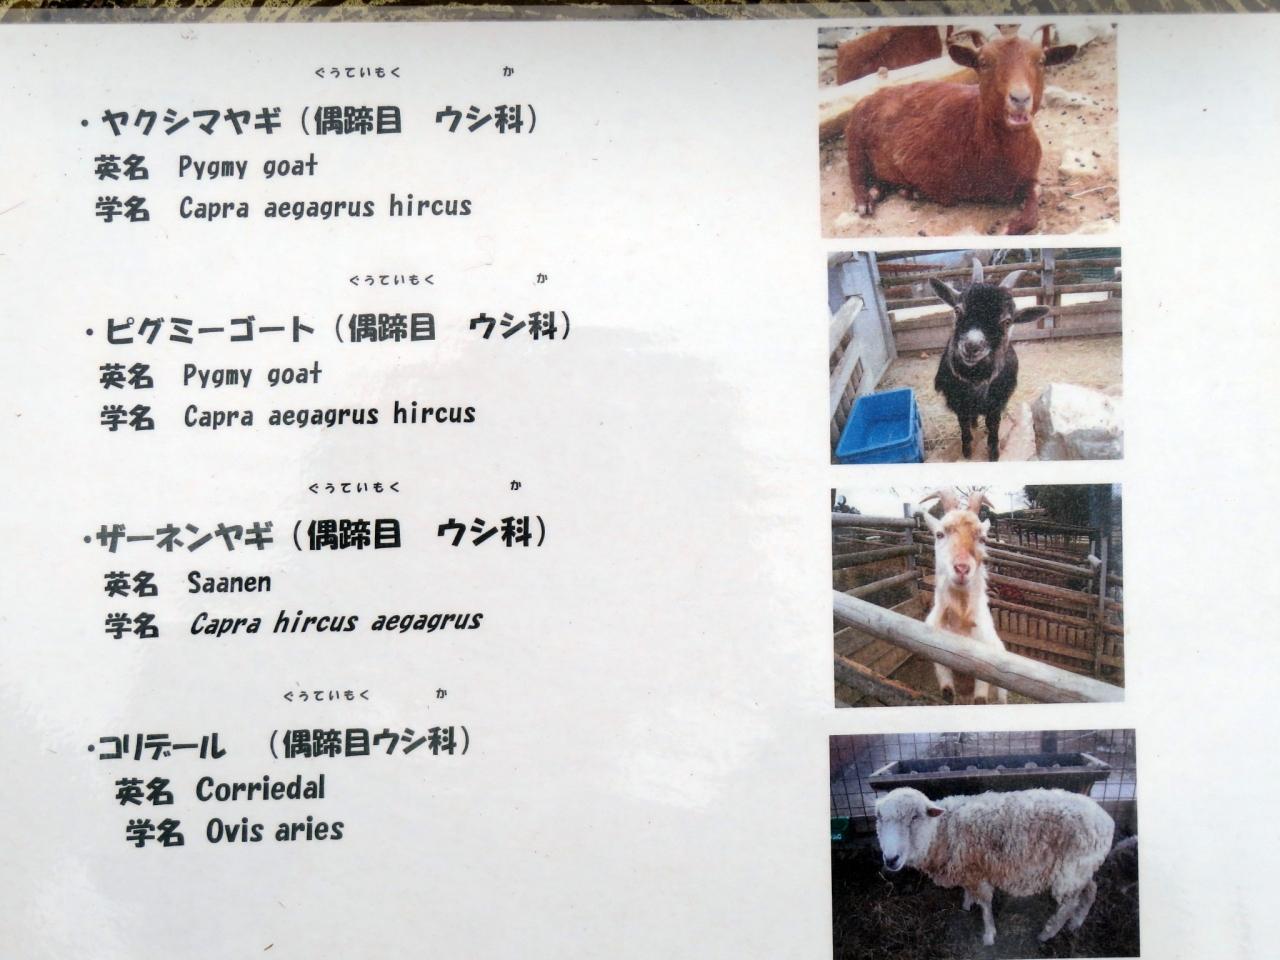 ぐうていもく か
・ヤクシマヤギ（偶蹄目　ウシ科）
英名　Pygmy goat
学名　Capra aegagrus hircus
ぐうていもく か
・ピグミーゴート（偶蹄目　ウシ科）
英名　Pygmy goat
学名　Capra aegagrus hircus
ぐうていもく か
・ザーネンヤギ（偶蹄目　ウシ科）
英名　Saanen
学名　Capra hircus aegagrus
ぐうていもく か
・コリデール　（偶蹄目ウシ科）
英名　Corriedal
学名　Ovis aries